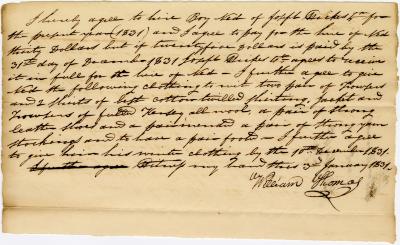 I hereby agree to hire Boy Ned of Joseph Dickes Sr for
the present year (1831) and I agree to pay for the hire of Ned
thirty Dollars but if twenty four Dollars is paid by the
31st day of December 1831 Joseph Dickes Sr agrees to receive
it in full for the hire of Ned I further agree to give
Ned the following clothing to wit two pair of Trousers
and Shirts of cotton twilled shirting, Jacket and
Trousers of fulled Kersey all wool, a pair of strong
leather shoes and a pair mended a pair of strong yarn
stockings and to have a pair footed I further agree
to give him his winter clothing by the 10th December 1831.
I further agree Witness my hand this 3rd January 1831.
William Thomas